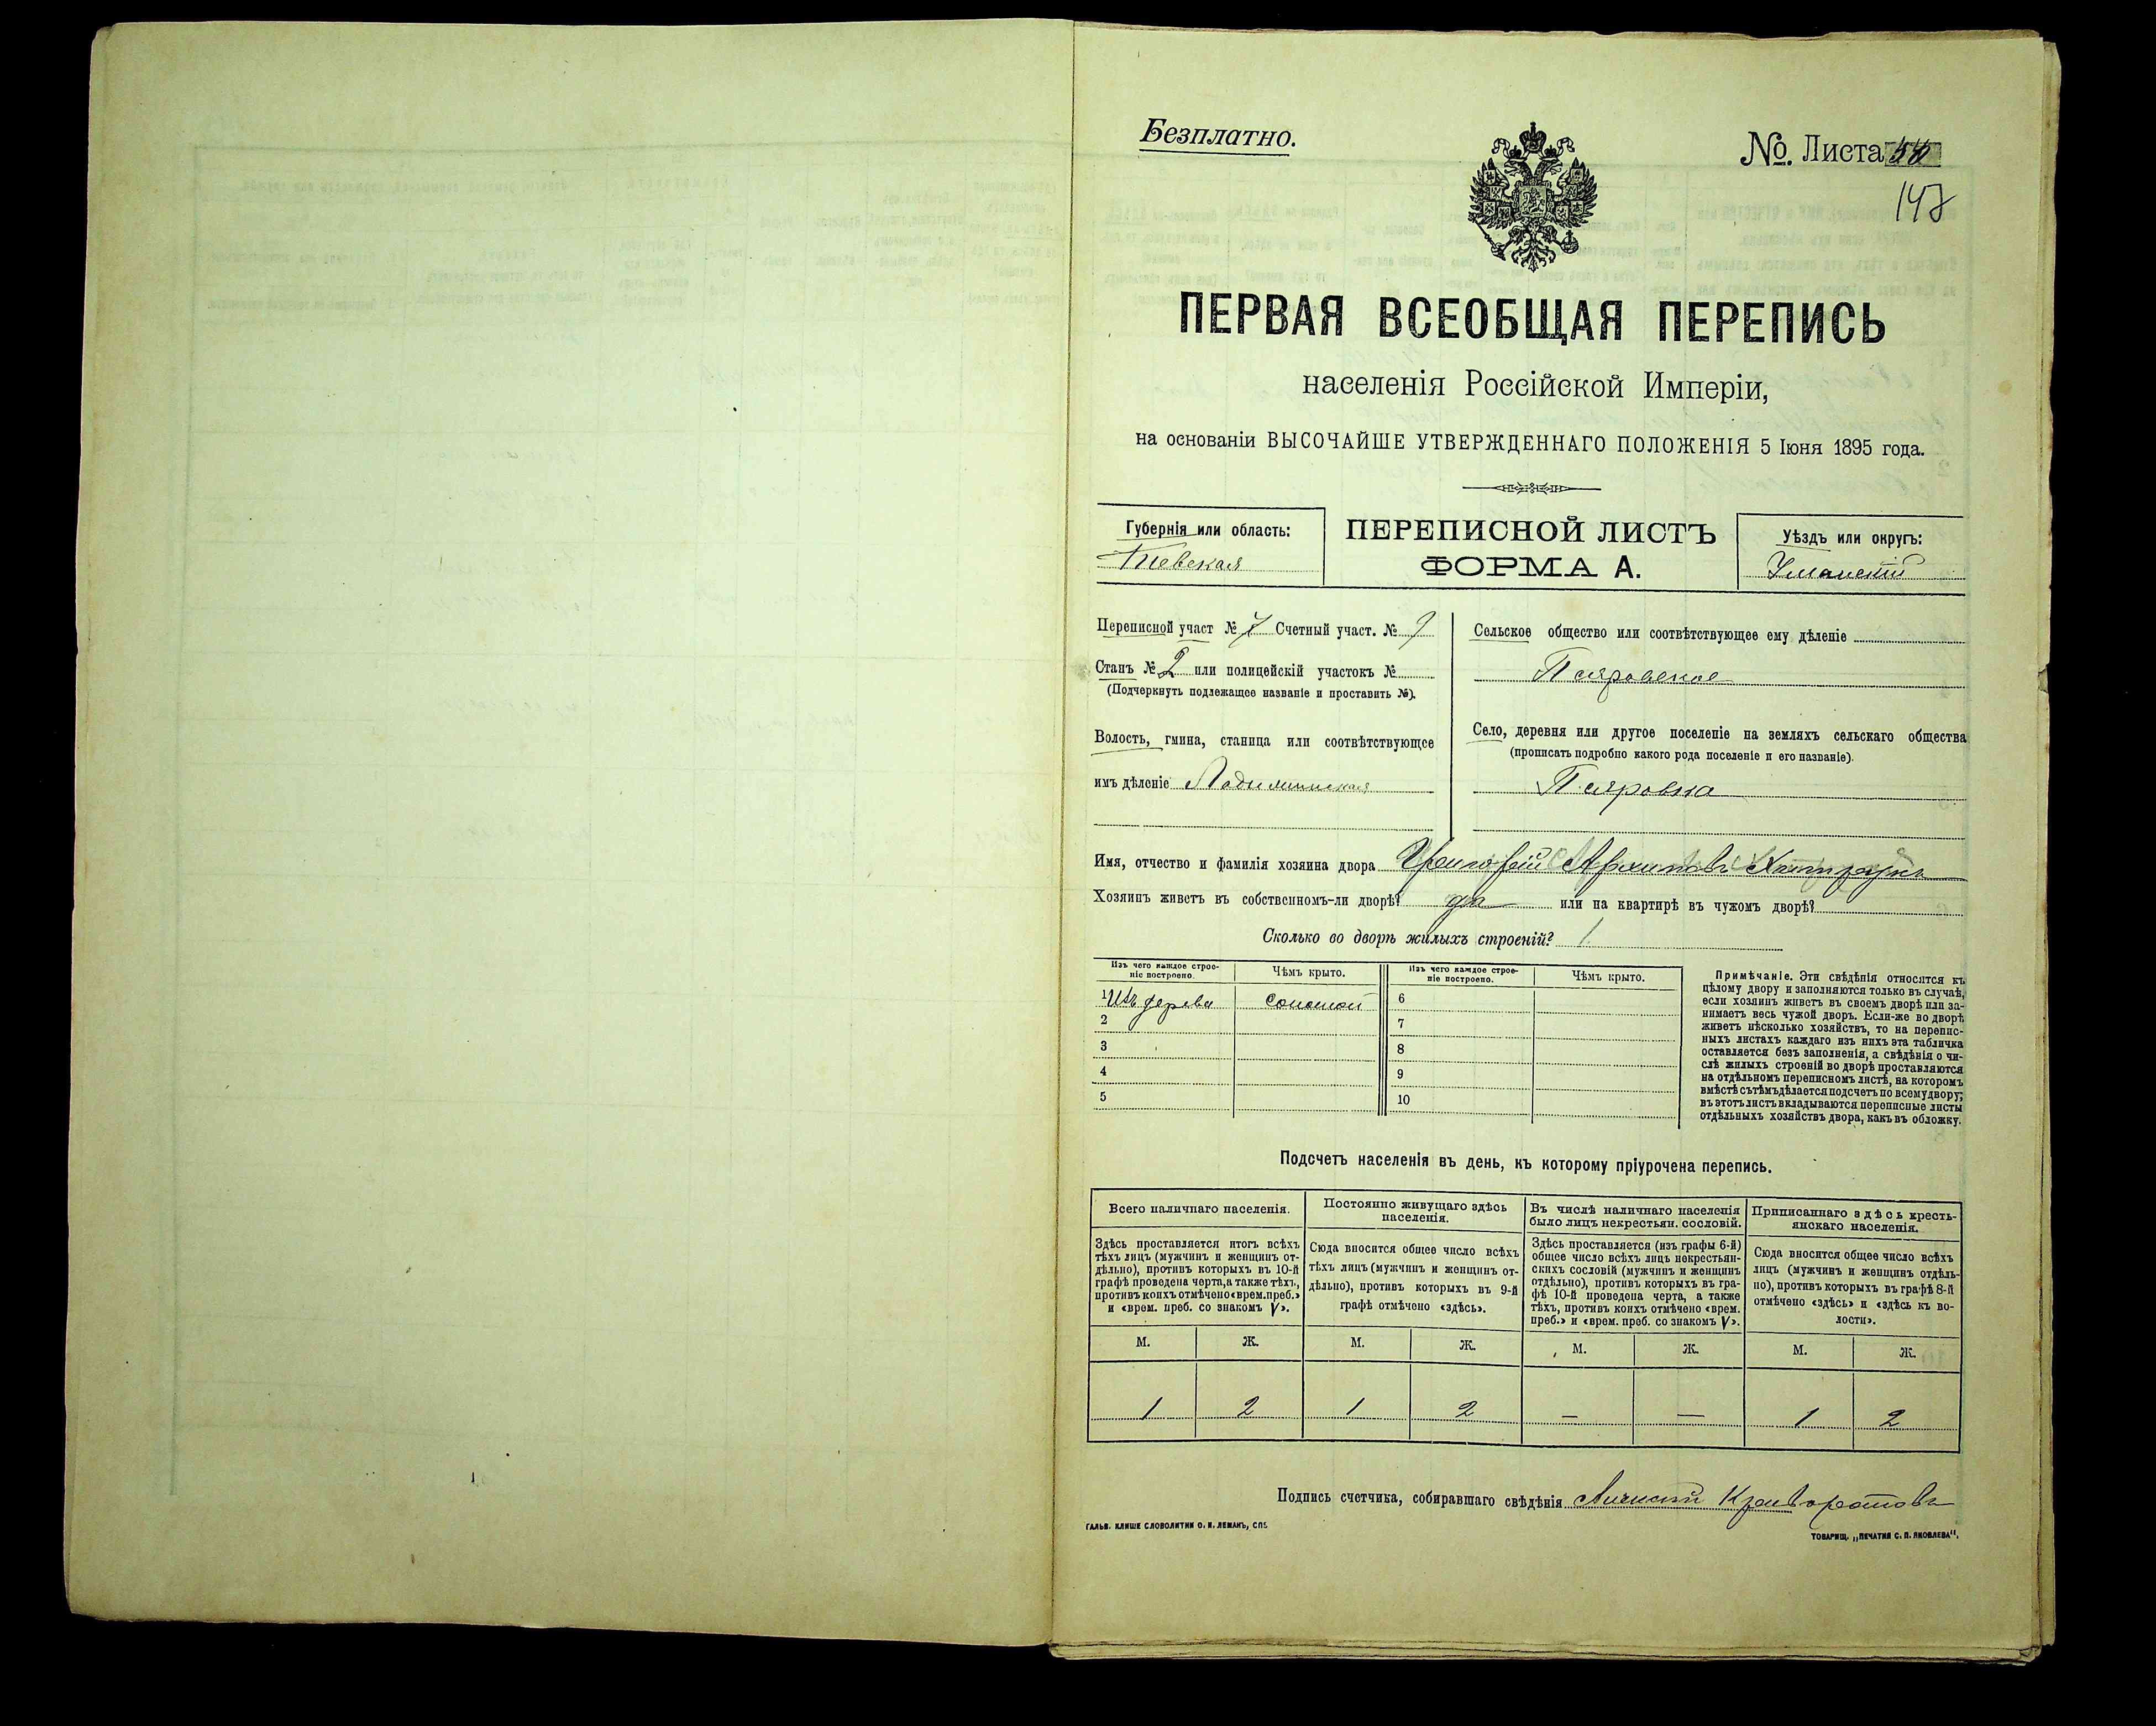 Безплатно.
№. Листа 50
147
ПЕРВАЯ ВСЕОБЩАЯ ПЕРЕПИСЬ
населенія Россійской Имперіи,
на основаніи ВЫСОЧАЙШЕ УТВЕРЖДЕННАГО ПОЛОЖЕНІЯ 5 Іюня 1895 года.
Губернія или область:
Киевская
ПЕРЕПИСНОЙ ЛИСТЪ
ФОРМА А.
Уѣздъ или округъ:
Уманскій
Переписной участ № 7 Счетный участ. № 9
Станъ № 2 или полицейскій участокъ №
(Подчеркнуть подлежащее названіе и проставить №).
Волость, гмина, станица или соотвѣтствующее
имъ дѣленіе
Сельское общество или соотвѣтствующее ему дѣленіе
Псяровское
Село, деревня или другое поселеніе на земляхъ сельскаго общества
(прописать подробно какого рода поселеніе и его названіе).
Псяровка
Имя, отчество и фамилія хозяина двора Архиповъ
Хозяинъ живетъ въ собственномъ-ли дворѣ? да или на квартирѣ въ чужомъ дворѣ?
Сколько во дворѣ жилыхъ строеній? 1
Изъ чего каждое строе-
ніе построено.
Чѣмъ крыто.
Изъ чего каждое строе-
ніе построено.
Чѣмъ крыто.
1 Изъ дерева соломой 6
2 7
3 8
4 9
5 10
Примѣчаніе. Эти свѣдѣнія относятся къ
цѣлому двору и заполняются только въ случаѣ,
если хозяинъ живетъ въ своемъ дворѣ или за-
нимаетъ весь чужой дворъ. Если-же во дворѣ
живетъ нѣсколько хозяйствъ, то на перепис-
ныхъ листахъ каждаго изъ нихъ эта табличка
оставляется безъ заполненія, а свѣдѣнія о чи-
слѣ жилыхъ строеній во дворѣ проставляются
на отдѣльномъ переписномъ листѣ, на которомъ
вмѣстѣ съ тѣмъ дѣлается подсчетъ по всему двору;
въ этотъ листъ вкладываются переписные листы
отдѣльныхъ хозяйствъ двора, какъ въ обложку.
Подсчетъ населенія въ день, къ которому пріурочена перепись.
Всего наличнаго населенія.
Здѣсь проставляется итогъ всѣхъ
тѣхъ лицъ (мужчинъ и женщинъ от-
дѣльно), противъ которыхъ въ 10-й
графѣ проведена черта, а также тѣхъ,
противъ коихъ отмѣчено «врем. преб.»
и «врем. преб. со знакомъ V».
Постоянно живущаго здѣсь
населенія.
Сюда вносится общее число всѣхъ
тѣхъ лицъ (мужчинъ и женщинъ от-
дѣльно), противъ которыхъ въ 9-й
графѣ отмѣчено «здѣсь».
Въ числѣ наличнаго населенія
было лицъ некрестьян. сословій.
Здѣсь проставляется (изъ графы 6-й)
общее число всѣхъ лицъ некрестьян-
скихъ сословій (мужчинъ и женщинъ
отдѣльно), противъ которыхъ въ гра-
фѣ 10-й проведена черта, а также
тѣхъ, противъ коихъ отмѣчено «врем.
преб.» и «врем. преб. со знакомъ V».
Приписаннаго здѣсь кресть-
янскаго населенія.
Сюда вносится общее число всѣхъ
лицъ (мужчинъ и женщинъ отдѣль-
но), противъ которыхъ въ графѣ 8-й
отмѣчено «здѣсь» и «здѣсь къ во-
лости».
М. Ж. М. Ж. М. Ж. М. Ж.
1 2 1 2 — — 1 2
Подпись счетчика, собиравшаго свѣдѣнія
ГАЛЬВ. КЛИШЕ СЛОВОЛИТНИ О. И. ЛЕМАНЪ, СПБ.
ТОВАРИЩ. „ПЕЧАТНЯ С. П. ЯКОВЛЕВА".